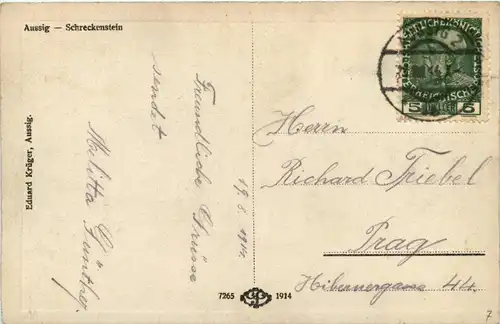 Aussig — Schreckenstein
Eduard Krüger, Aussig.
19. 5. 1914.
Freundliche Grüsse
sendet
Melitta Günther.
AUSSIG 2
5 HELLER 5
Herrn
Richard Triebel
Prag
Hibernergasse 44.
7265 1914
7